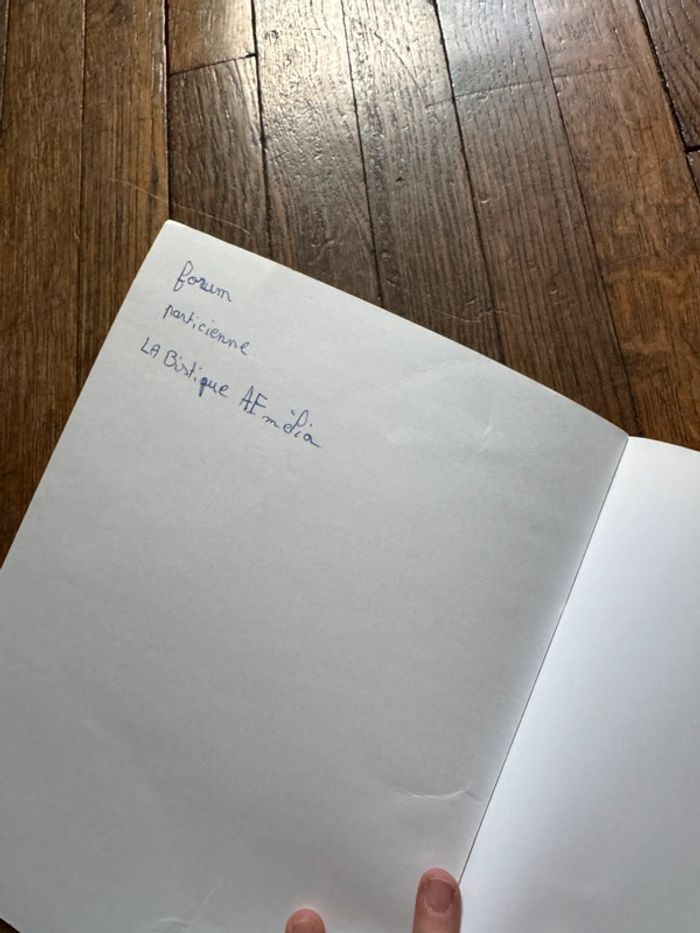 forum
particienne
LA Bistique AF média